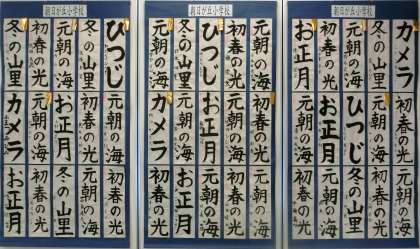 朝日が丘小学校
カメラ
冬の山里
元朝の海
初春の光
お正月
初春の光
元朝の海
ひつじ
お正月
元朝の海
元朝の海
初春の光
冬の山里
元朝の海
初春の光
朝日が丘小学校
元朝の海
初春の光
ひつじ
冬の山里
元朝の海
初春の光
元朝の海
お正月
初春の光
カメラ
元朝の海
お正月
初春の光
朝日が丘小学校
ひつじ
元朝の海
初春の光
冬の山里
元朝の海
初春の光
お正月
元朝の海
カメラ
初春の光
冬の山里
元朝の海
初春の光
お正月